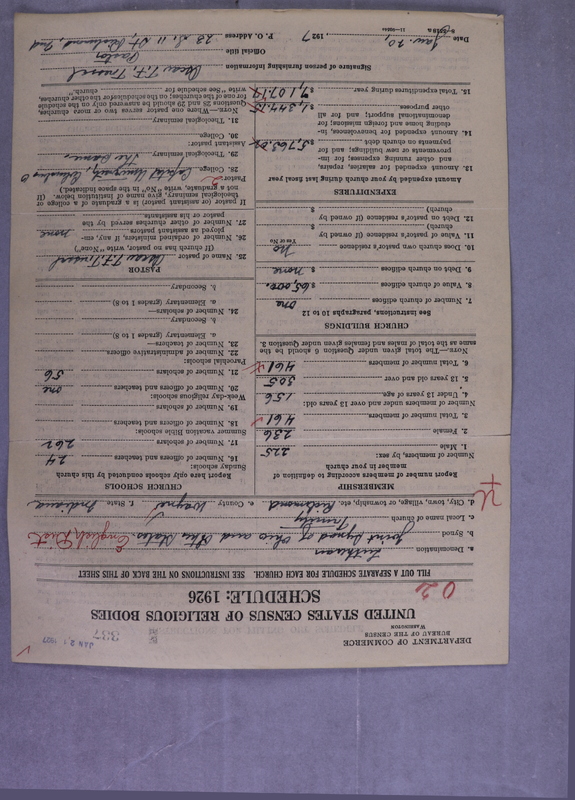 DEPARTMENT OF COMMERCE
BUREAU OF THE CENSUS
WASHINGTON
JAN 21 1927
337
UNITED STATES CENSUS OF RELIGIOUS BODIES
SCHEDULE: 1926
FILL OUT A SEPARATE SCHEDULE FOR EACH CHURCH. SEE INSTRUCTIONS ON THE BACK OF THIS SHEET
a. Denomination Lutheran
b. Synod Joint Synod of Ohio and Other States English Dist
c. Local name of church Trinity
d. City, town, village, or township, etc. Richmond e. County Wayne f. State Indiana
MEMBERSHIP
Report number of members according to definition of
member in your church
Number of members, by sex:
1. Male 225
2. Female 236
3. Total number of members 461
Number of members under and over 13 years old:
4. Under 13 years of age 156
5. 13 years old and over 305
6. Total number of members 461
NOTE.—The total given under Question 6 should be the
same as the total of males and females given under Question 3.
CHURCH BUILDINGS
See instructions, paragraphs 10 to 12
7. Number of church edifices one
8. Value of church edifices $ 65,000.
9. Debt on church edifices $ none
10. Does church own pastor's residence no
Yes or No
11. Value of pastor's residence (if owned by
church) $
12. Debt on pastor's residence (if owned by
church) $
EXPENDITURES
Amount expended by your church during last fiscal year
13. Amount expended for salaries, repairs,
and other running expenses; for im-
provements or new buildings; and for
payments on church debt
14. Amount expended for benevolences, in-
cluding home and foreign missions; for
denominational support; and for all
other purposes
15. Total expenditures during year
CHURCH SCHOOLS
Report here only schools conducted by this church
Sunday schools:
16. Number of officers and teachers 24
17. Number of scholars 262
Summer vacation Bible schools:
18. Number of officers and teachers
19. Number of scholars
Week-day religious schools:
20. Number of officers and teachers one
21. Number of scholars 56
Parochial schools:
22. Number of administrative officers
23. Number of teachers—
a. Elementary (grades 1 to 8)
b. Secondary
24. Number of scholars—
a. Elementary (grades 1 to 8)
b. Secondary
PASTOR
25. Name of pastor
(If church has no pastor, write "None")
26. Number of ordained ministers, if any, em-
ployed as assistant pastors none
27. Number of other churches served by the
pastor or his assistants
If pastor (or assistant pastor) is a graduate of a college or
theological seminary, give name of institution below. (If
not a graduate, write "No" in the space indicated.)
Pastor:
28. College Capital University, Columbus O
29. Theological seminary The same
Assistant pastor:
30. College
31. Theological seminary
NOTE.—Where one pastor serves two or more churches,
Questions 28 and 29 should be answered only on the schedule
for one of the churches; on the schedule for the other churches,
write "See schedule for church."
Signature of person furnishing information
Official title Pastor
Date Jan. 20, 1927 P. O. Address Richmond, Ind